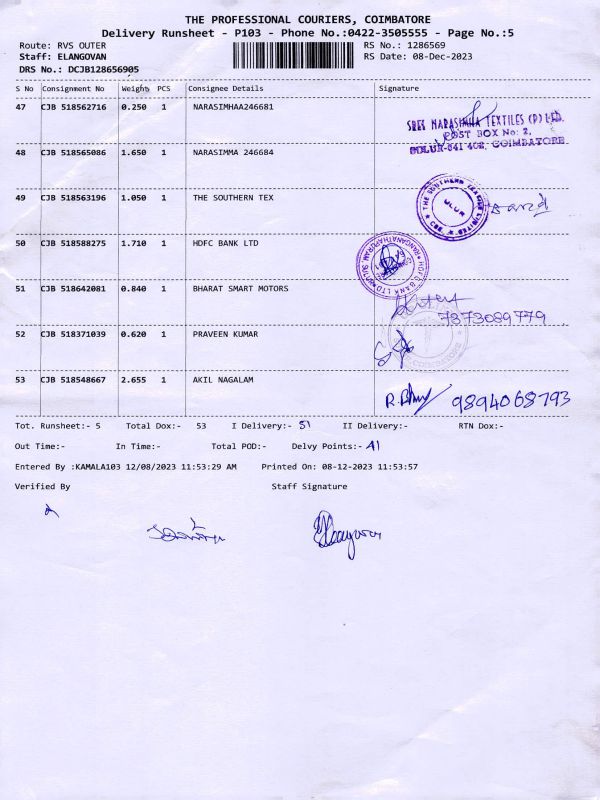 THE PROFESSIONAL COURIERS, COIMBATORE
Delivery Runsheet - P103 - Phone No.:0422-3505555 - Page No.:5
Route: RVS OUTER RS No.: 1286569
Staff: ELANGOVAN RS Date: 08-Dec-2023
DRS No.: DCJB128656905
S No Consignment No Weight PCS Consignee Details Signature
47 CJB 518562716 0.250 1 NARASIMHAA246681
SREE NARASIMHA TEXTILES (P) LTD.
POST BOX No: 2,
SULUR-641 402, COIMBATORE
48 CJB 518565086 1.650 1 NARASIMMA 246684
49 CJB 518563196 1.050 1 THE SOUTHERN TEX
50 CJB 518588275 1.710 1 HDFC BANK LTD
51 CJB 518642081 0.840 1 BHARAT SMART MOTORS
7373089779
52 CJB 518371039 0.620 1 PRAVEEN KUMAR
53 CJB 518548667 2.655 1 AKIL NAGALAM
9894068793
Tot. Runsheet:- 5 Total Dox:- 53 I Delivery:- 51 II Delivery:- RTN Dox:-
Out Time:- In Time:- Total POD:- Delvy Points:- 41
Entered By :KAMALA103 12/08/2023 11:53:29 AM Printed On: 08-12-2023 11:53:57
Verified By Staff Signature